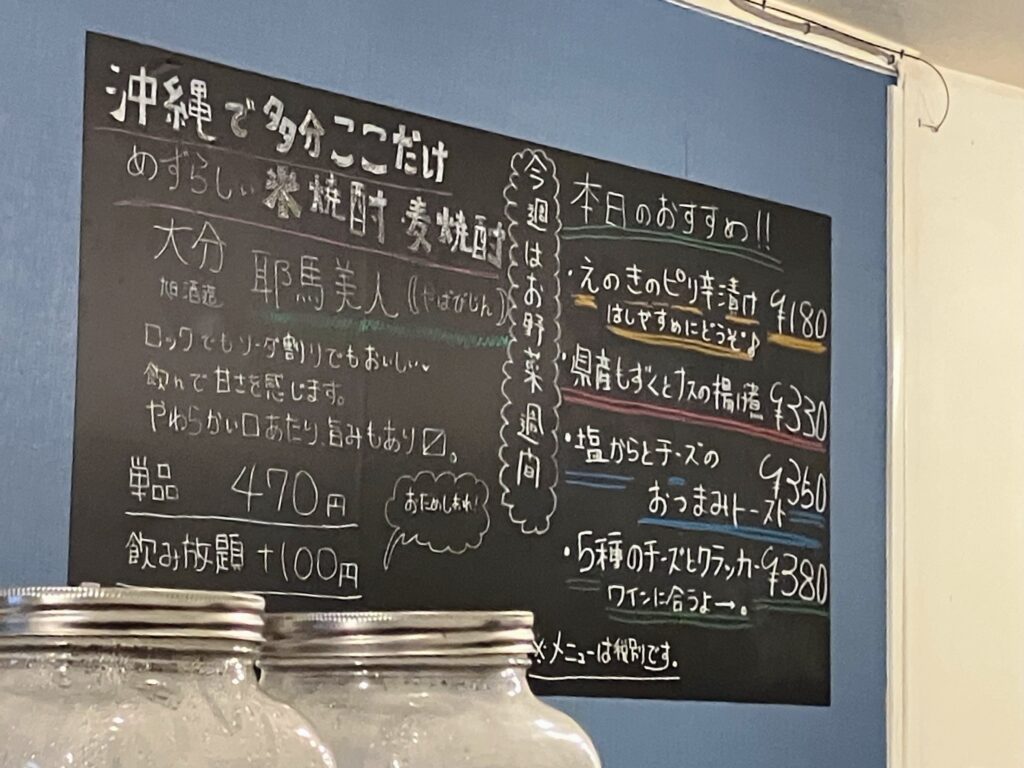 沖縄で多分ここだけ
めずらしい米焼酎 麦焼酎
大分
旭酒造 耶馬美人((やばびじん))
ロックでもソーダ割りでもおいしい
飲んで甘さを感じます。
やわらかい口あたり、旨みもあり〼。
単品 470円
飲み放題 +100円
おためしあれ!
今週はお野菜週間
本日のおすすめ!!
・えのきのピリ辛漬け ¥180
はしやすめにどうぞ♪
・県産もずくとナスの揚げ煮 ¥330
・塩からとチーズの
おつまみトースト ¥350
・5種のチーズとクラッカー ¥380
ワインに合うよー。
※メニューは税別です。